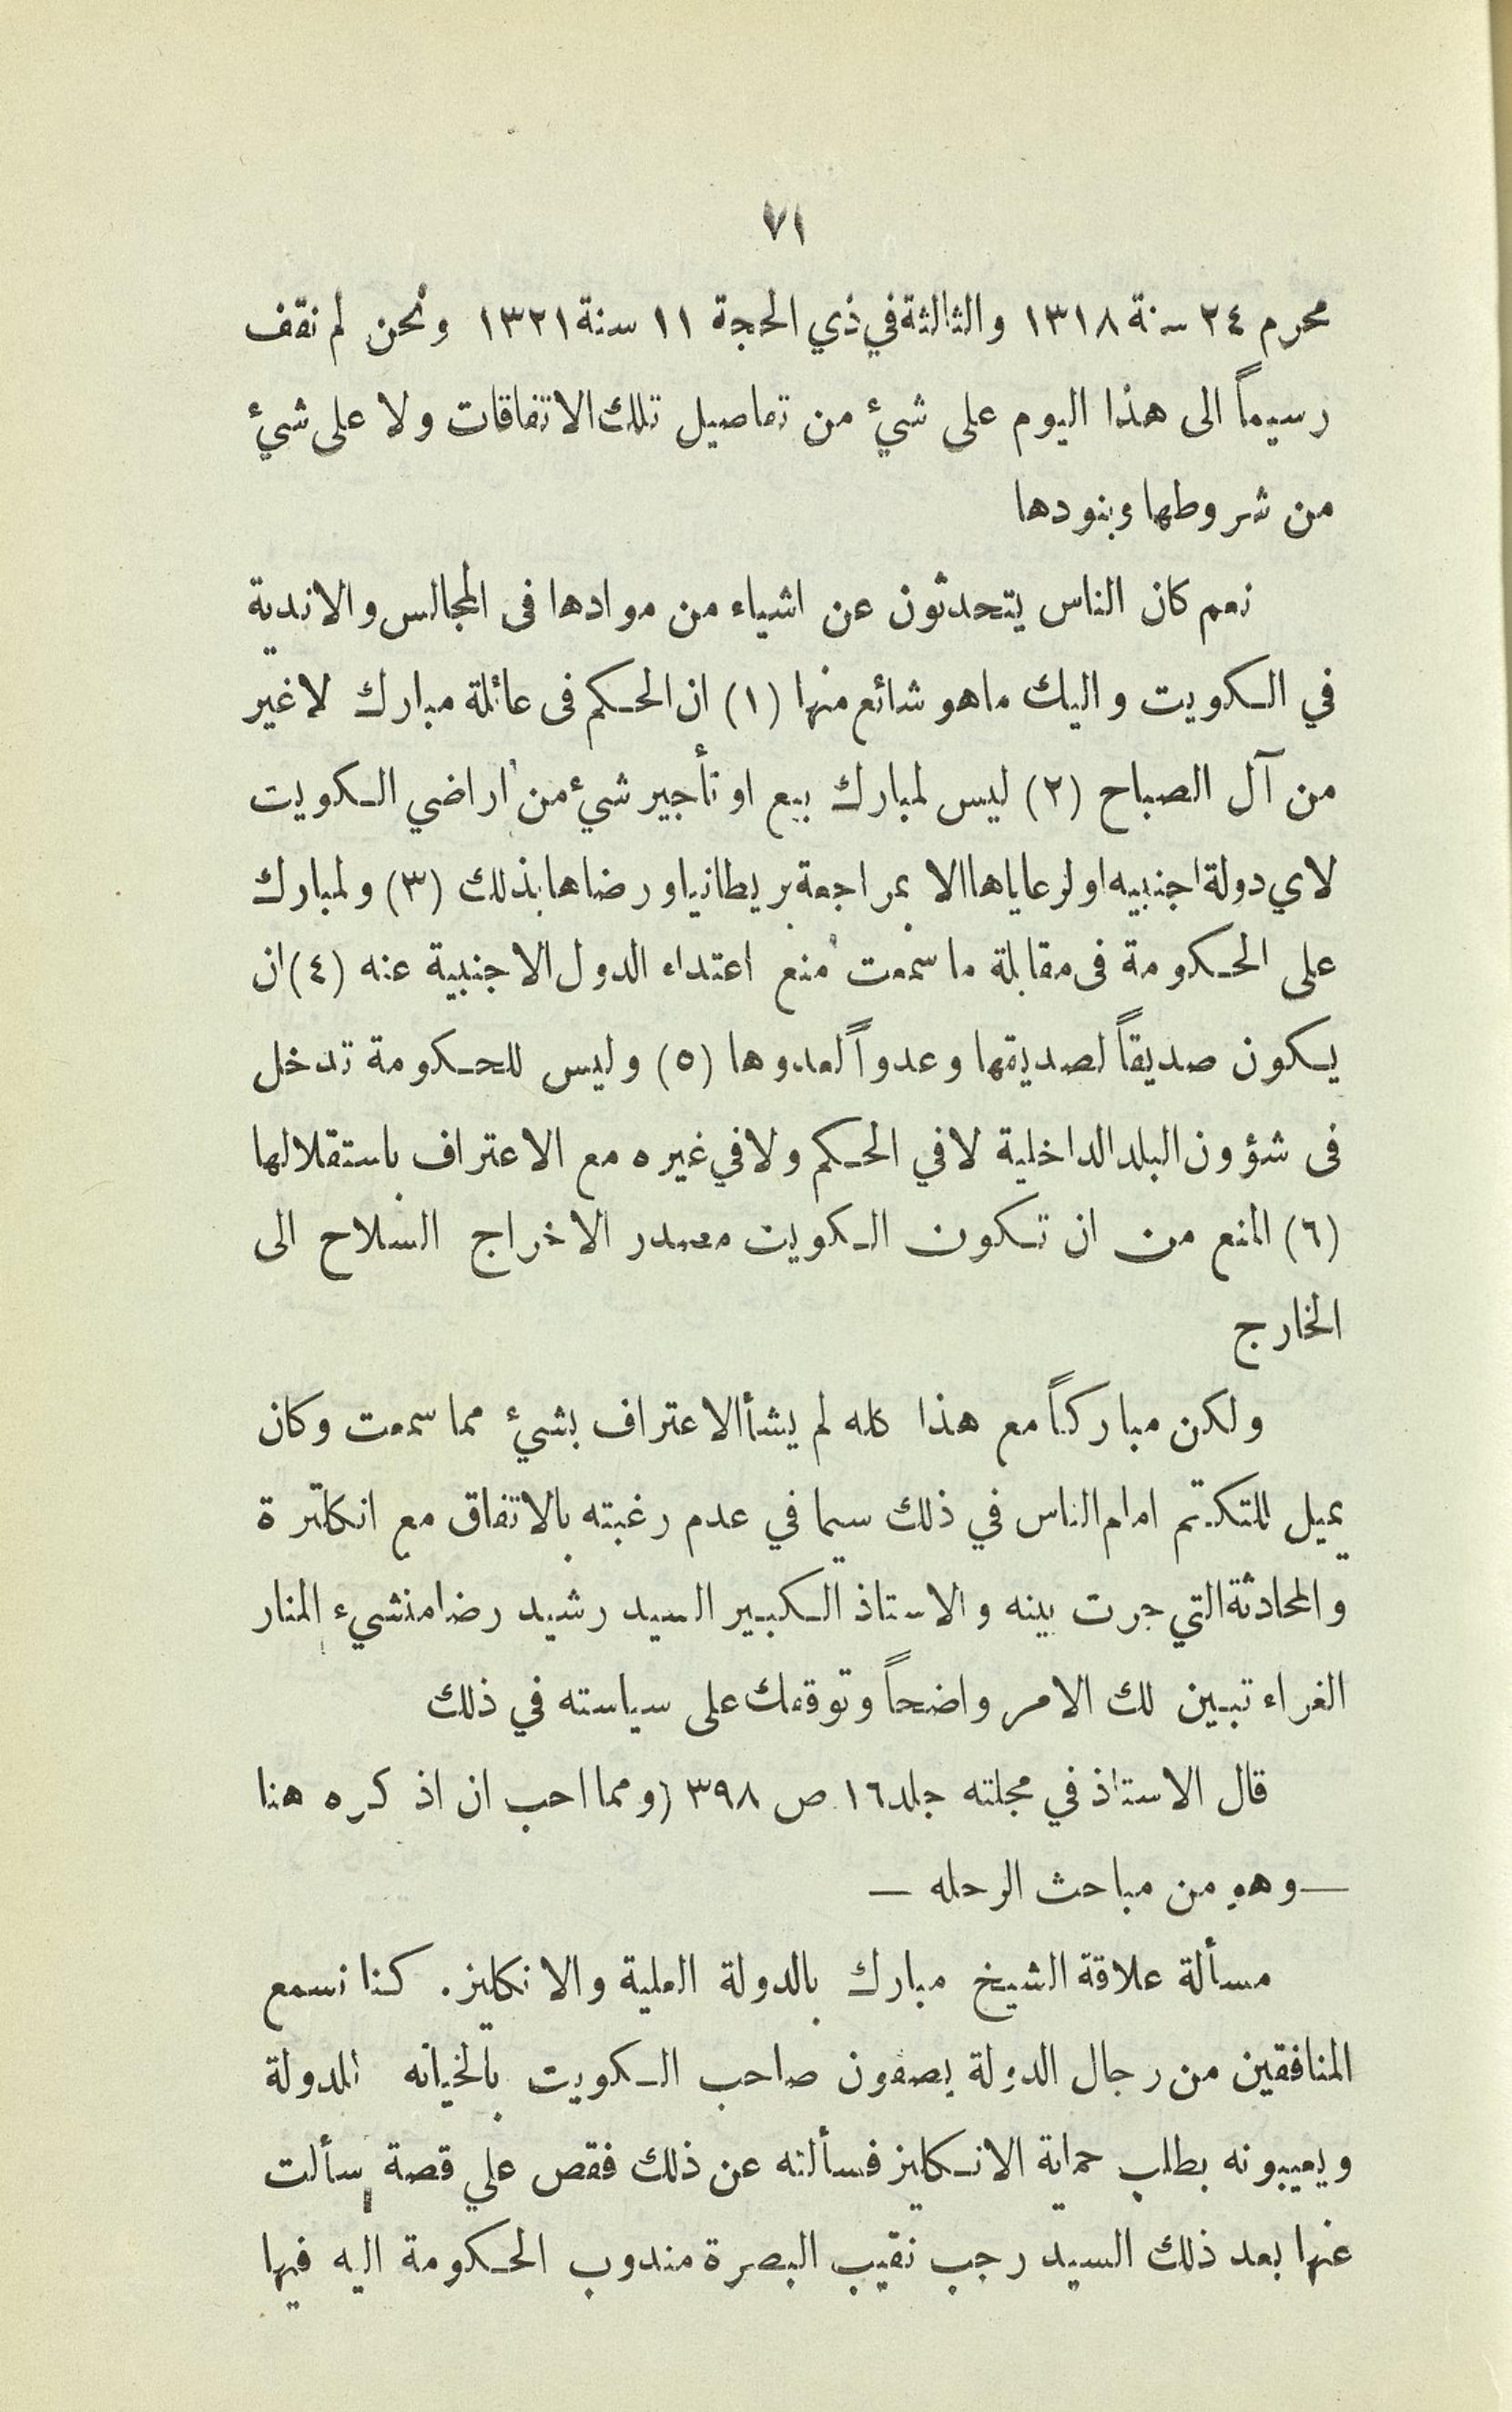 ٧١
محرم ٢٤ سنة ١٣١٨ والثالثة في ذي الحجة ١١ سنة ١٣٢١ ونحن لم نقف
رسيماً الى هذا اليوم على شئ من تفاصيل تلك الاتفاقات ولا على شئ
من شروطها وبنودها
نعم كان الناس يتحدثون عن اشياء من موادها فى المجالس والاندية
في الكويت واليك ماهو شائع منها (١) ان الحكم فى عائلة مبارك لا غير
من آل الصباح (٢) ليس لمبارك بيع او تأجير شئ من اراضي الكويت
لاي دولة اجنبيه او لرعاياها الا بمراجعة بريطانيا ورضاها بذلك (٣) ولمبارك
على الحكومة فى مقابلة ما سمعت منع اعتداء الدول الاجنبية عنه (٤) ان
يكون صديقاً لصديقها وعدواً لعدوها (٥) وليس للحكومة تدخل
فى شؤون البلد الداخلية لا في الحكم ولا في غيره مع الاعتراف باستقلالها
(٦) المنع من ان تكون الكويت مصدر الاخراج السلاح الى
الخارج
ولكن مباركاً مع هذا كله لم يشأ الاعتراف بشئ مما سمعت وكان
يميل للتكتم امام الناس في ذلك سيما في عدم رغبته بالاتفاق مع انكلترة
والمحادثة التي جرت بينه والاستاذ الكبير السيد رشيد رضا منشيء المنار
الغراء تبين لك الامر واضحاً وتوقفك على سياسته في ذلك
قال الاستاذ في مجلته جلد ١٦ ص ٣٩٨ (ومما احب ان اذكره هنا
— وهو من مباحث الرحله —
مسألة علاقة الشيخ مبارك بالدولة العلية والانكليز. كنا نسمع
المنافقين من رجال الدولة يصفون صاحب الكويت بالخيانه للدولة
ويعيبونه بطلب حماية الانكليز فسألته عن ذلك فقص علي قصة سألت
عنها بعد ذلك السيد رجب نقيب البصرة مندوب الحكومة اليه فيها